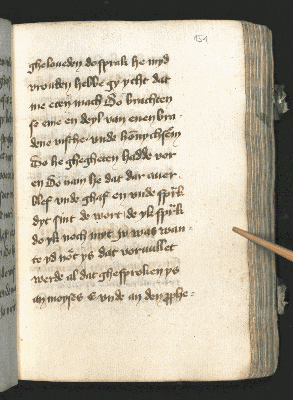 151
gheloueden do sprak he myd
vrouden hebbe gy ycht dat
me eten mach Do brachten
se eme en deyl van enen bra
dene vissche vnde honnichsem
Do he ghegheten hadde vor
en Do nam he dat dar auer
blef vnde ghaf en vnde sprak
dyt sint de wort de yk sprak
do yk noch myt ju was wan
te yd not ys dat voruullet
werde al dat ghesproken ys
an moyses E vnde an den prophe